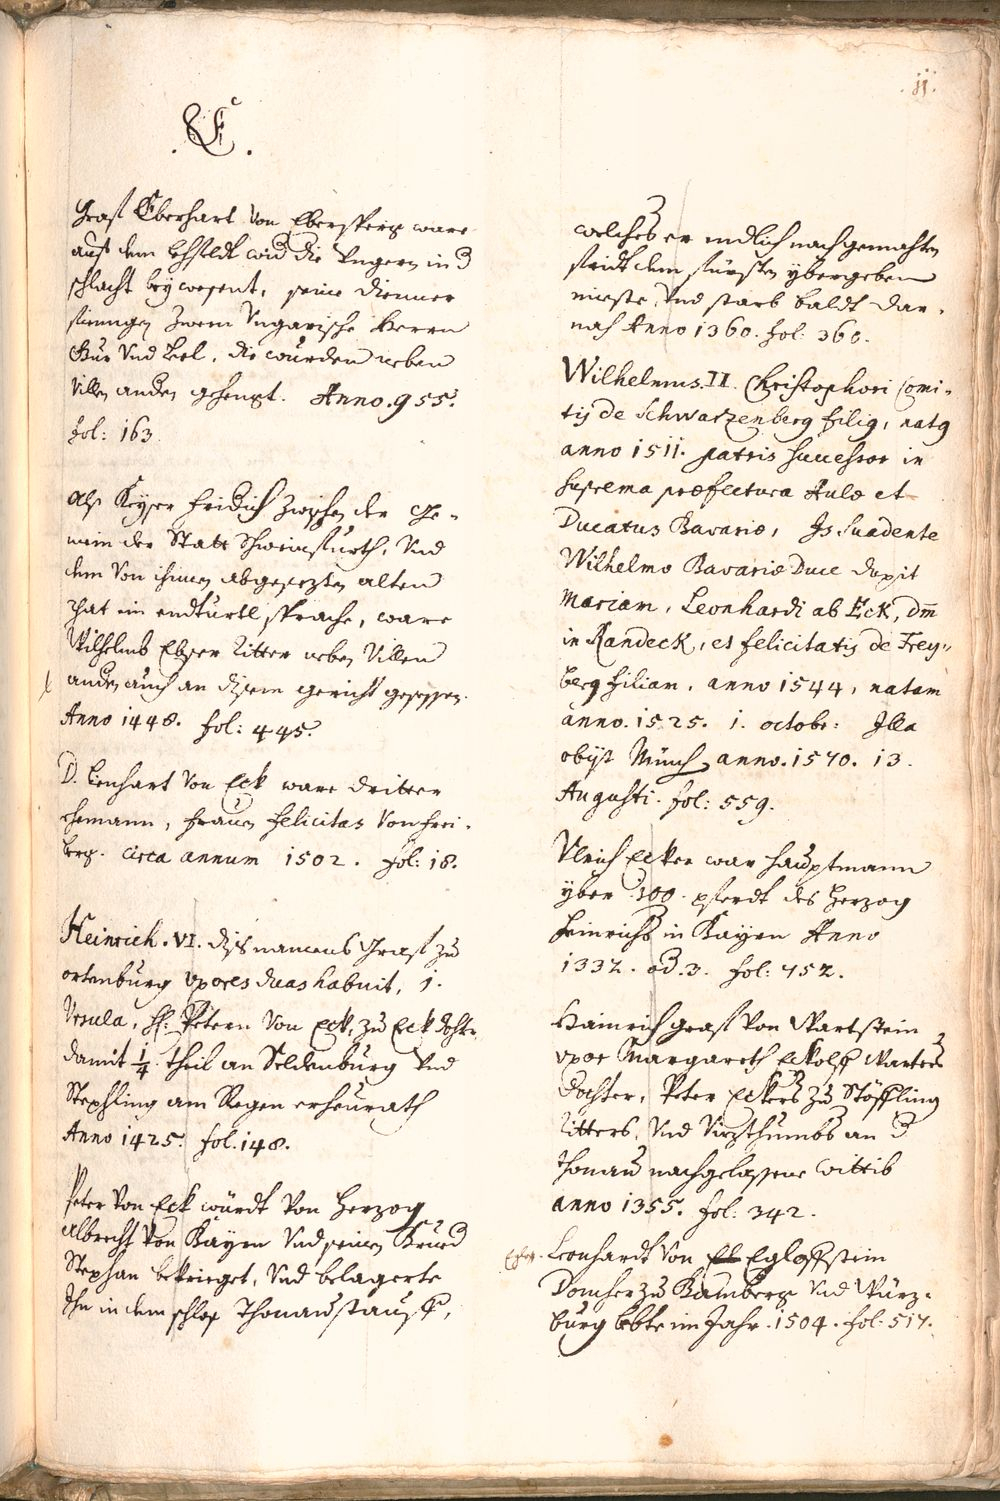 11.
.E.
Graff Eberhart Von Ebersperg ware
auf dem Lechfeldt wid die Ungern in d
schlacht beywesent, seine Dienner
fiengen zween Ungarische Herrn
Sur Und Leel, die wurden neben
Villen andern gehengt. Anno. 955.
fol: 163.
Als Keyser Fridrich Zwischen der Ge-
mein der Statt Schweinfurth, Und
dem Von ihnen abgesezten alten
Rhat ein endturtl sprache, ware
Wilhelmb Ebser Ritter neben Villen
andern auch an disem gericht gesessen.
Anno 1448. fol: 445.
D. Lienhart Von Eck ware dritter
ehemann, frauen Felicitas Von Frei-
berg. circa annum 1502. fol: 18.
Heinrich. VI. diss namens Graff zu
ortenburg uxores duas habuit, 1.
Ursula, H: Petern Von Eck, zu Eck dochter
damit 1/4 theil an Seldenburg Und
Stephling am Regen erheurath
Anno 1425. fol. 148.
Peter Von Eck würdt Von Herzog
Albrecht Von Bayrn Und seinen Brued
Stephan bekrieget, Und belagerte
Ihn in dem schloss Thonaustauff,
welches er endlich nach gemachten
fridt dem fürsten ybergeben
mieste, Und starb baldt dar-
nach Anno 1360. fol: 360.
Wilhelmus. II. Christophori Comi-
tis de Schwarzenberg filius, natus
anno 1511. patris successor in
suprema præfectura Aulæ et
Ducatus Bavariæ, Is suadente
Wilhelmo Bavariæ Duce duxit
Mariam, Leonhardi ab Eck, dm̄
in Randeck, et felicitatis de Frey-
berg filiam, anno 1544, natam
anno. 1525. 1. octobr: Illa
obijt Münch, anno. 1570. 13.
Augusti. fol: 559.
Ulrich Ecker war hauptmann
yber 100. pferdt des Herzog
Heinrichs in Bayrn Anno
1332. od. 3. fol: 452.
Hainrich graff Von Wartstein
uxor Margareth Eckolss Warters
dochter, Peter Eckers zu Stöffling
Ritters, Und Vizthumbs an d
thonau nachgelassene wittib
anno 1355. fol: 342.
Leonhardt Von El Egloffstein
Domherr zu Bamberg Und Würz-
burg lebte im Jahr. 1504. fol: 517.